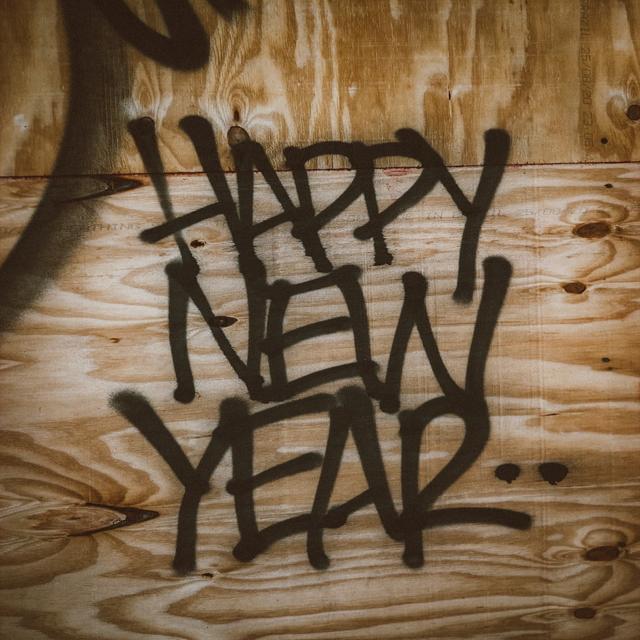 HAPPY
NEW
YEAR..